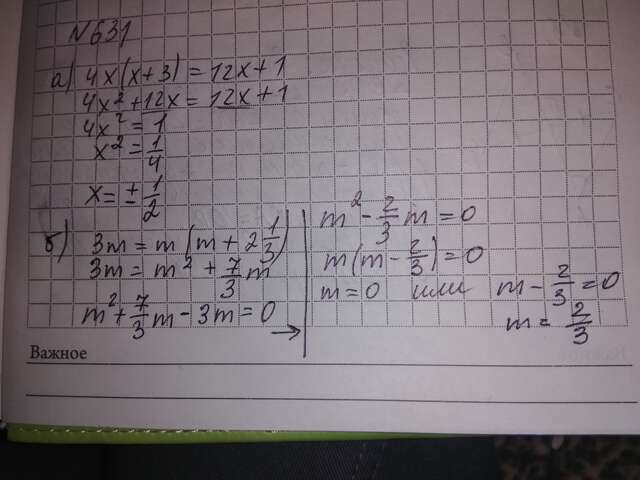 N631
а) 4x(x+3) = 12x+1
4x² + 12x = 12x + 1
4x² = 1
x² = 1/4
x = ± 1/2
б) 3m = m(m + 2 1/3)
3m = m² + 7/3 m
m² + 7/3 m - 3m = 0 →
m² - 2/3 m = 0
m(m - 2/3) = 0
m = 0 или m - 2/3 = 0
m = 2/3
Важное